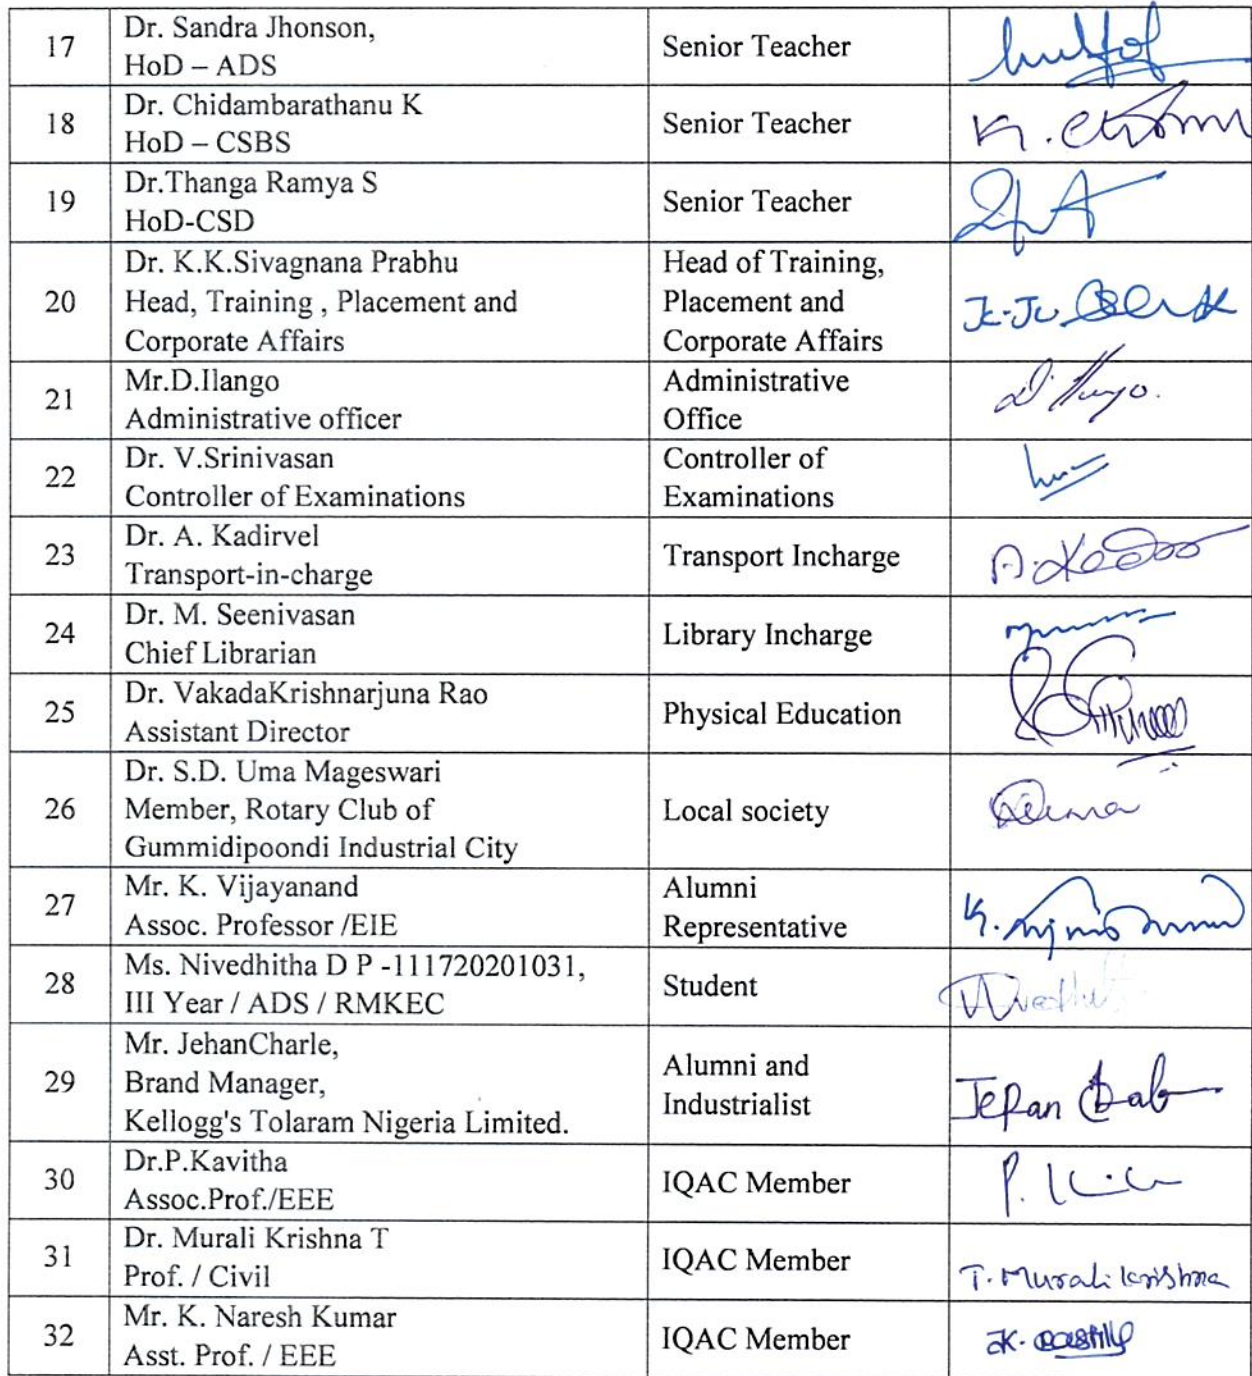 17
Dr. Sandra Jhonson,
HoD – ADS
Senior Teacher
18
Dr. Chidambarathanu K
HoD – CSBS
Senior Teacher
19
Dr.Thanga Ramya S
HoD-CSD
Senior Teacher
20
Dr. K.K.Sivagnana Prabhu
Head, Training , Placement and
Corporate Affairs
Head of Training,
Placement and
Corporate Affairs
21
Mr.D.Ilango
Administrative officer
Administrative
Office
22
Dr. V.Srinivasan
Controller of Examinations
Controller of
Examinations
23
Dr. A. Kadirvel
Transport-in-charge
Transport Incharge
24
Dr. M. Seenivasan
Chief Librarian
Library Incharge
25
Dr. VakadaKrishnarjuna Rao
Assistant Director
Physical Education
26
Dr. S.D. Uma Mageswari
Member, Rotary Club of
Gummidipoondi Industrial City
Local society
27
Mr. K. Vijayanand
Assoc. Professor /EIE
Alumni
Representative
28
Ms. Nivedhitha D P -111720201031,
III Year / ADS / RMKEC
Student
29
Mr. JehanCharle,
Brand Manager,
Kellogg's Tolaram Nigeria Limited.
Alumni and
Industrialist
30
Dr.P.Kavitha
Assoc.Prof./EEE
IQAC Member
31
Dr. Murali Krishna T
Prof. / Civil
IQAC Member
T. Murali krishna
32
Mr. K. Naresh Kumar
Asst. Prof. / EEE
IQAC Member